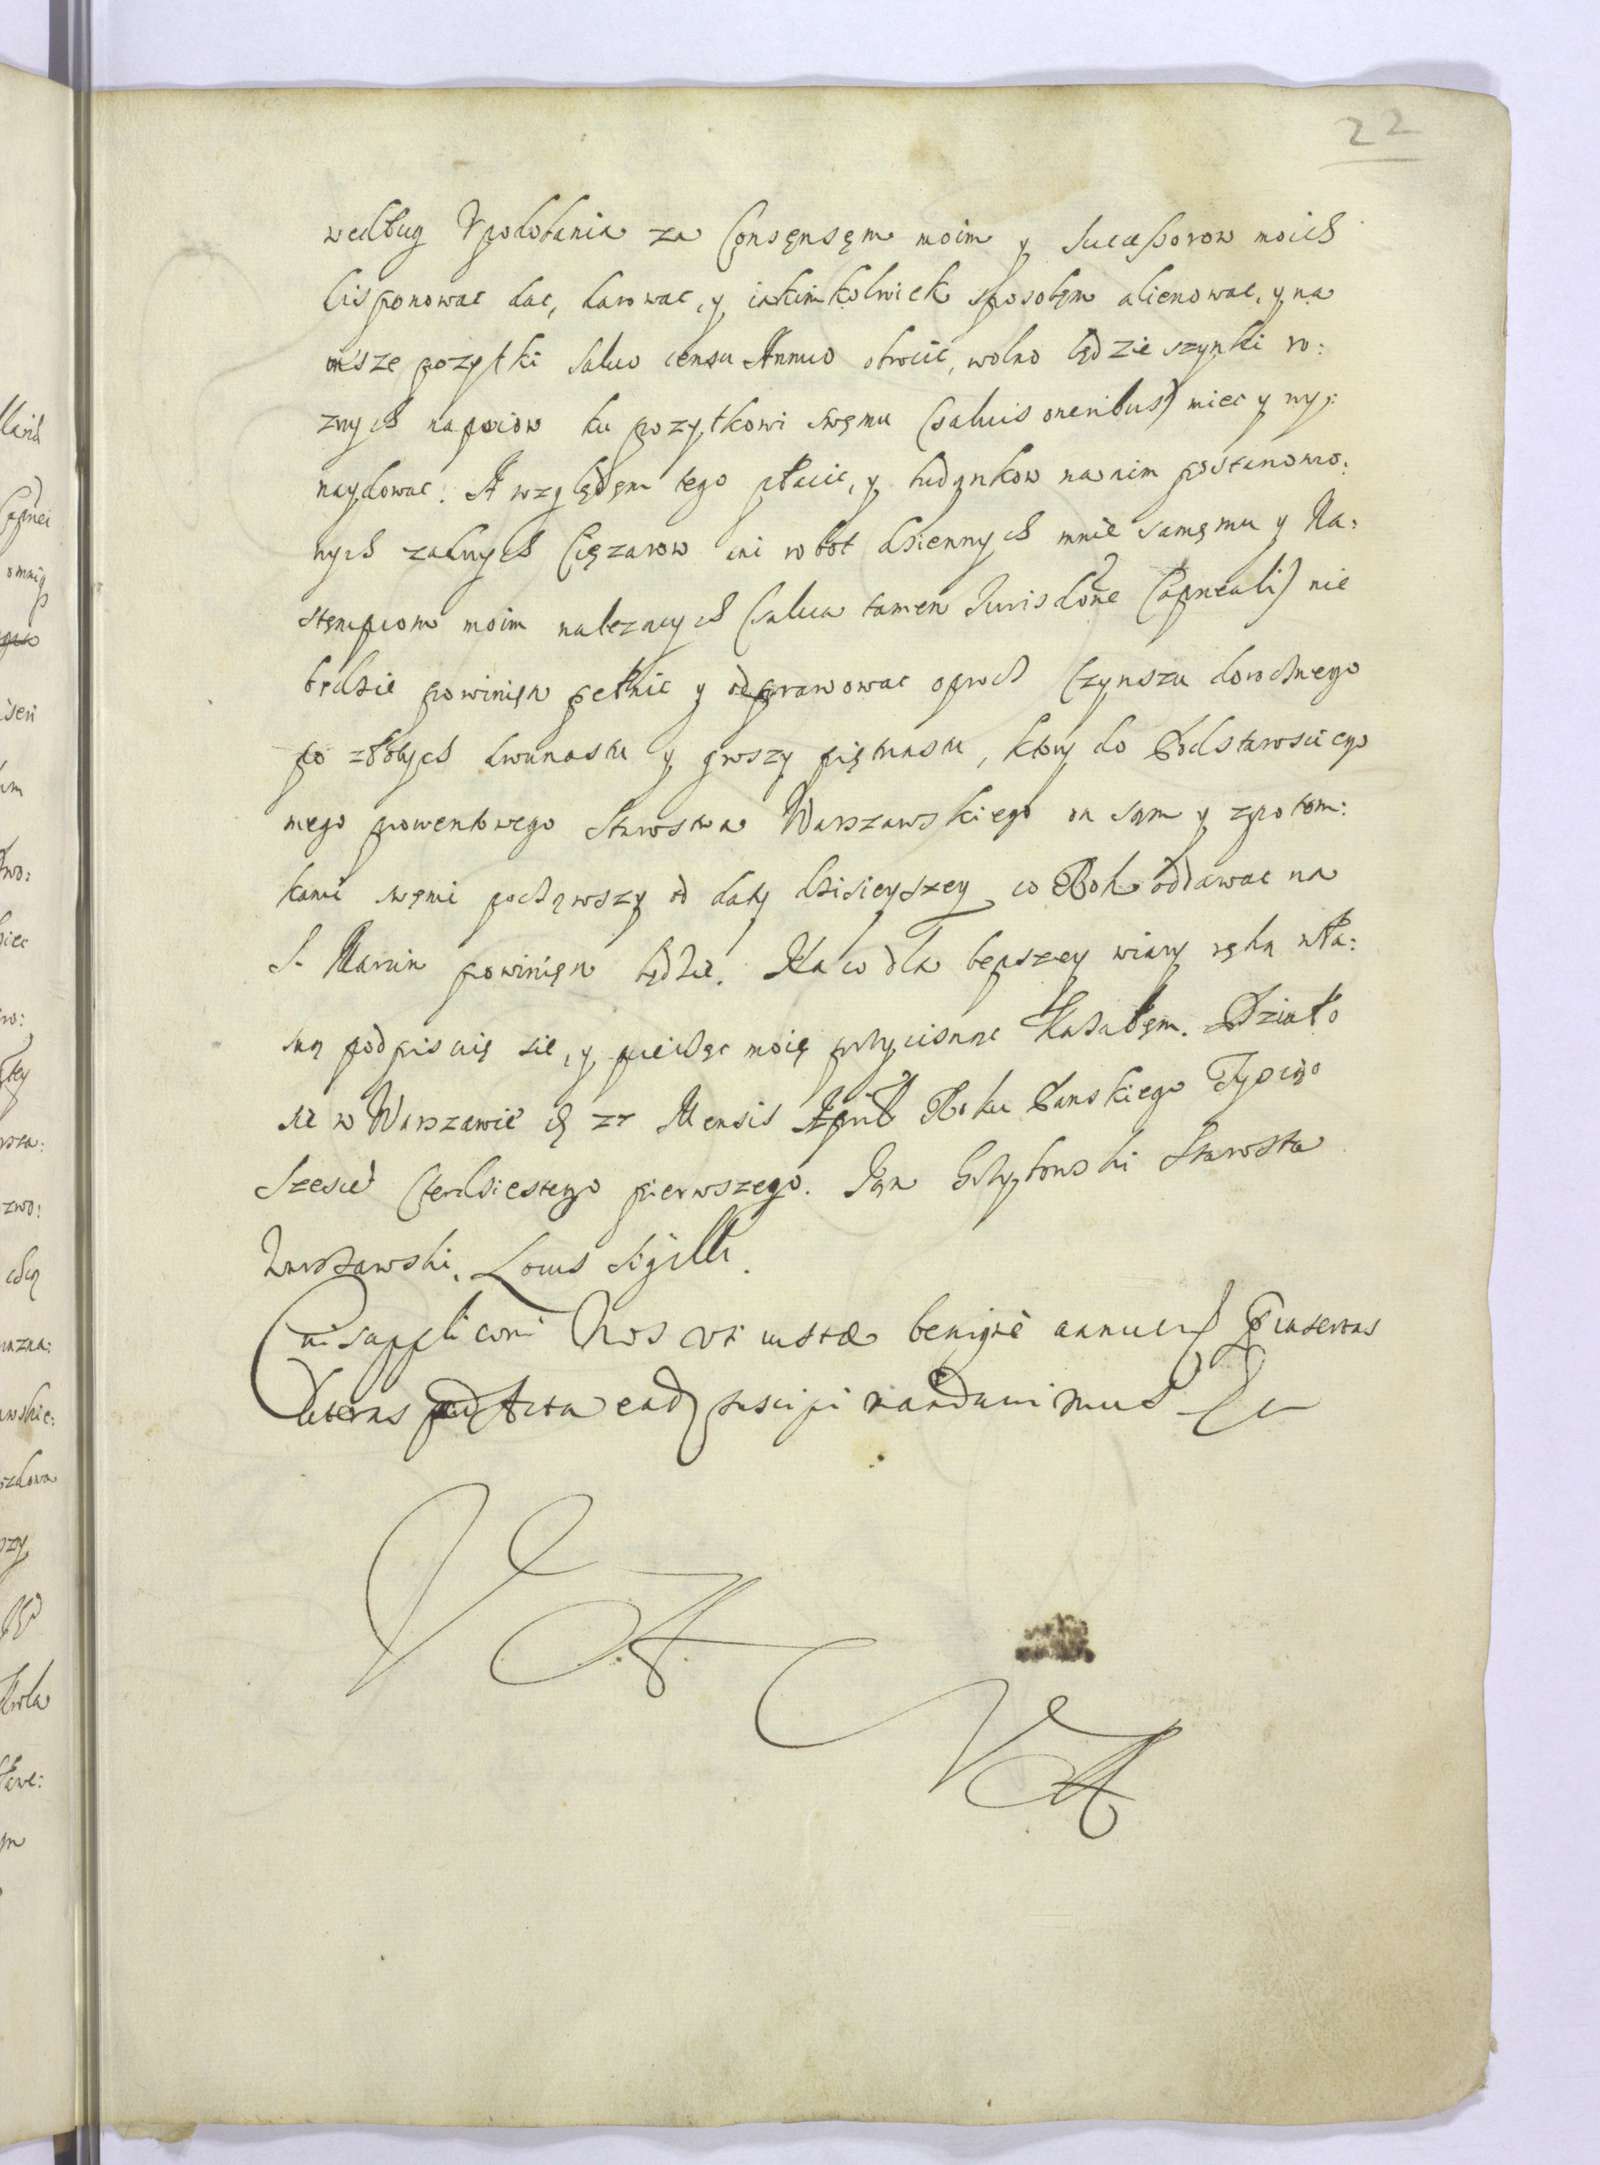 22
według Vpodobania za Consęnsęm moim y Sucessorow moich
disponowac dac, darowac, y iakimkolwiek sposobęm alienowac, y na
insze pozytki saluo censu Annuo obrocic, wolno będzie szynki ro:
znych napoiow ku pozytkowi swęmu (saluis oneribus) miec y wy:
naydowac. A względęm tego placu, y budynkow na nim postanowio:
nych zadnych Cięzarow ani robot dziennych mnie samęmu y Na:
stępcom moim nalezących (salua tamen Jurisdone Capneali) nie
będzie powinięn pełnic y odprawowac oproch Czynszu dorocznego
po złotych dwunastu y groszy piętnastu, ktory do Podstarosciego
mego prowentowego Starostwa Warszawskiego on sąm y z potom:
kami swęmi począwszy od daty dzisieyszey co Rok oddawac na
S. Marcin powinięn będzie. Na co dla lepszey wiary ręką wła:
sną podpisuię sie, y pieczęc moię przycisnąc kazałęm. Działo
sie w Warszawie Mensis April Roku Panskiego Tysiąc
Szescset Czterdziestego pierwszego. Ian Grzybowski Starosta
Warszawski. Locus Sigilli.
Cui suppliconi Nos vt iustæ benigne annuen. Pinsertas
literas ad Acta ead suscipi mandauimus